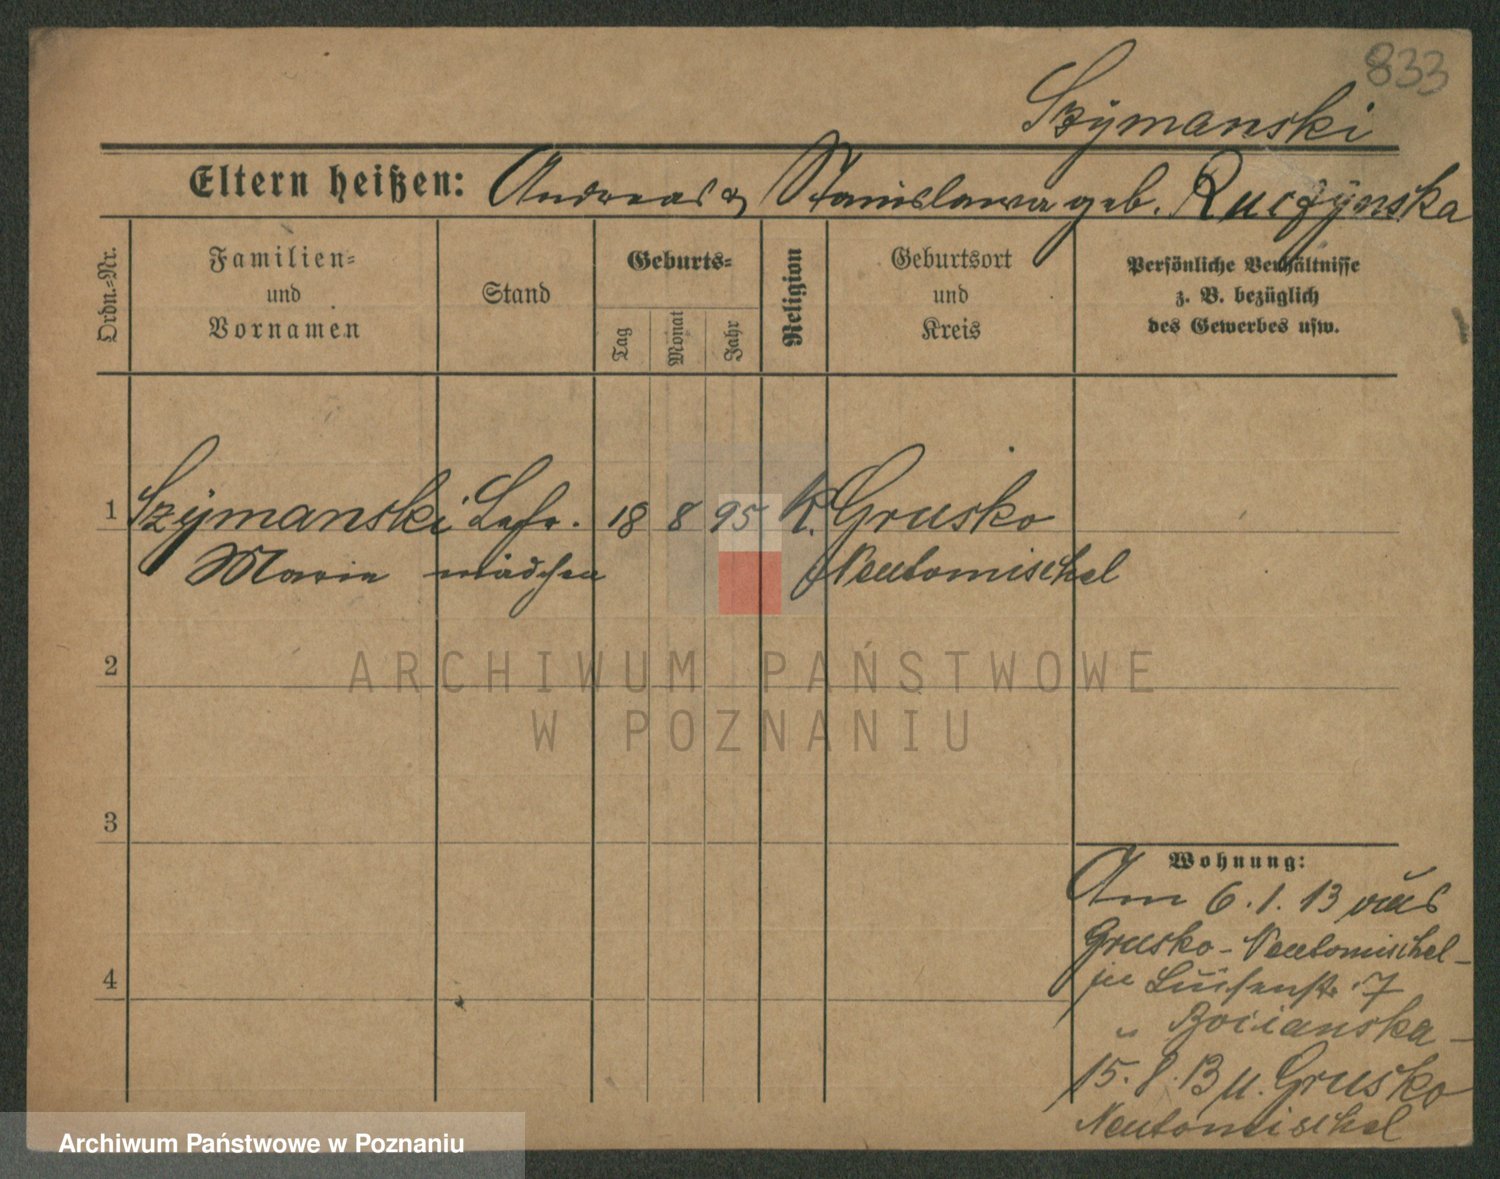 833
Szymanski
Eltern heißen: Andreas & Stanislawa geb. Ruczynska
Ordn.-Nr.
Familien-
und
Vornamen
Stand
Geburts-
Tag
Monat
Jahr
Religion
Geburtsort
und
Kreis
Persönliche Verhältnisse
z. B. bezüglich
des Gewerbes usw.
1 Szymanski Lehr. 18 8 95 K. Grusko
Marie mädchen Neutomischel
2
3
4
Wohnung:
Am 6. 1. 13 aus
Grusko - Neutomischel -
in Luisenstr. 7
" Bocianska -
15. 8. 13 n. Grusko
Neutomischel
ARCHIWUM PAŃSTWOWE
W POZNANIU
Archiwum Państwowe w Poznaniu